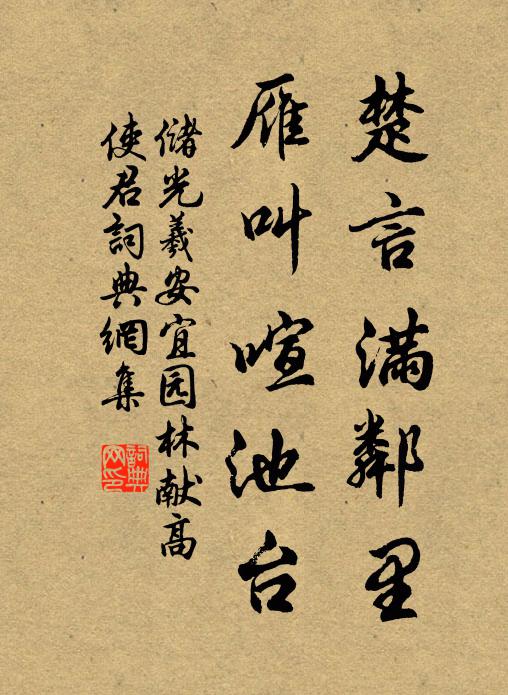 楚言满鄰里
雁叫喧池台
儲光羲安宜园林献高
使君詞典網集
詞典网印